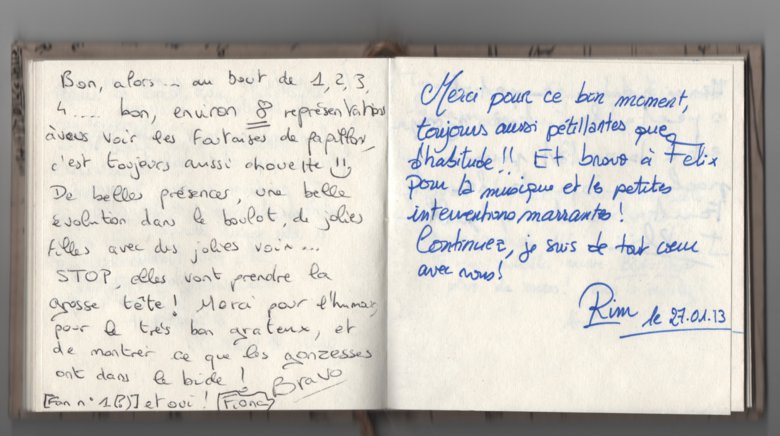 Bon, alors... au bout de 1, 2, 3,
4.... bon, environ 8 représentations
à vous voir les foutaises de papillon,
c'est toujours aussi chouette
De belles présences, une belle
évolution dans le boulot, de jolies
filles avec des jolies voix...
STOP, elles vont prendre la
grosse tête ! Merci pour l'humour,
pour le très bon grateux, et
de montrer ce que les gonzesses
ont dans le bide !
Bravo
[Fan n° 1(?)] et oui ! Fiona
Merci pour ce bon moment,
toujours aussi pétillantes que
d'habitude !! Et bravo à Felix
pour la musique et les petites
interventions marrantes !
Continuez, je suis de tout cœur
avec vous !
Rim le 27.01.13